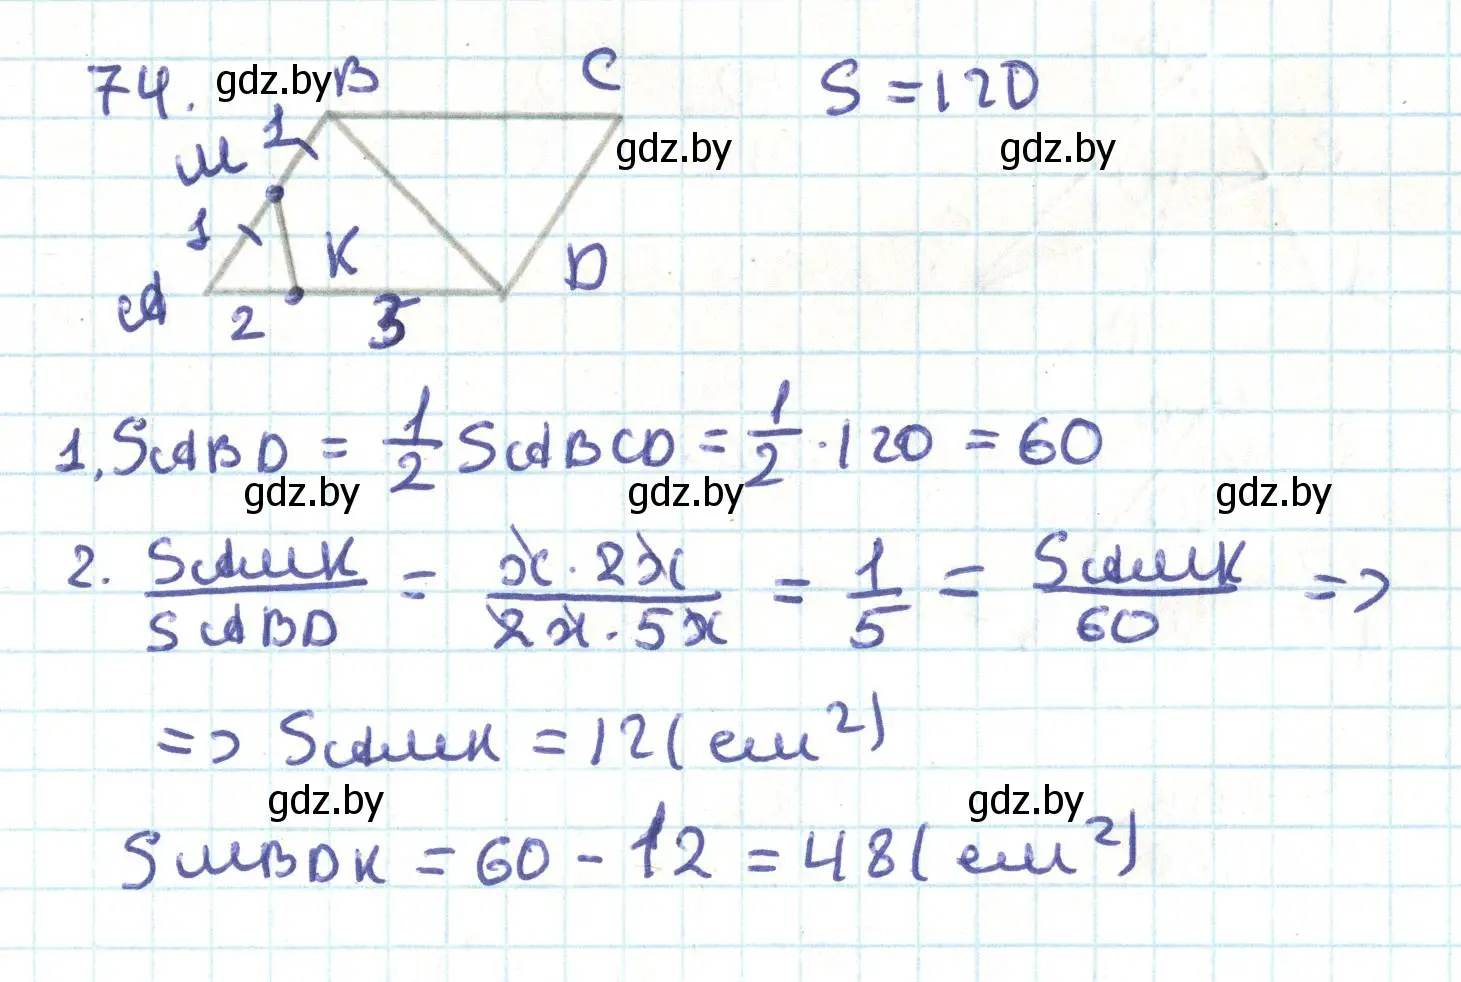 74. gdz.by B C S = 120
M 1 gdz.by gdz.by
1 K D
A 2 3
1, SABD = 1/2 SABCD = 1/2 · 120 = 60
gdz.by gdz.by gdz.by
2. SAMK/SABD = x · 2x/2x · 5x = 1/5 = SAMK/60 =>
=> SAMK = 12 (см²)
gdz.by gdz.by
SMBDK = 60 - 12 = 48 (см²)